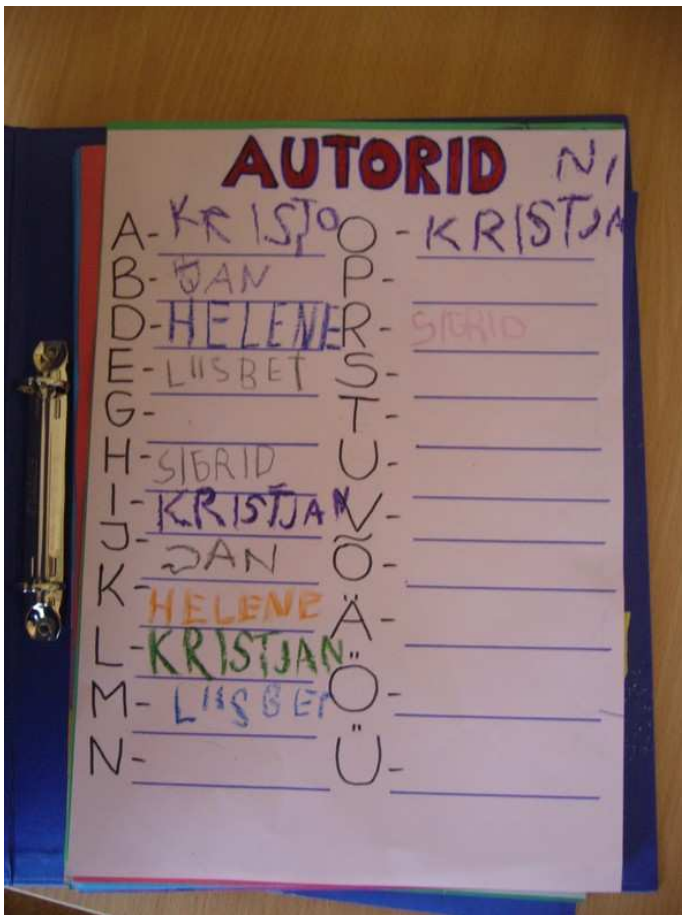 AUTORID
A- KRISTO
B- JAN
D- HELENE
E- LIISBET
G-
H- SIGRID
I- KRISTJAN
J- JAN
K- HELENE
L- KRISTJAN
M- LIISBET
N-
O- KRISTJA
P-
R- SIGRID
S-
T-
U-
V-
Õ-
Ä-
Ö-
Ü-